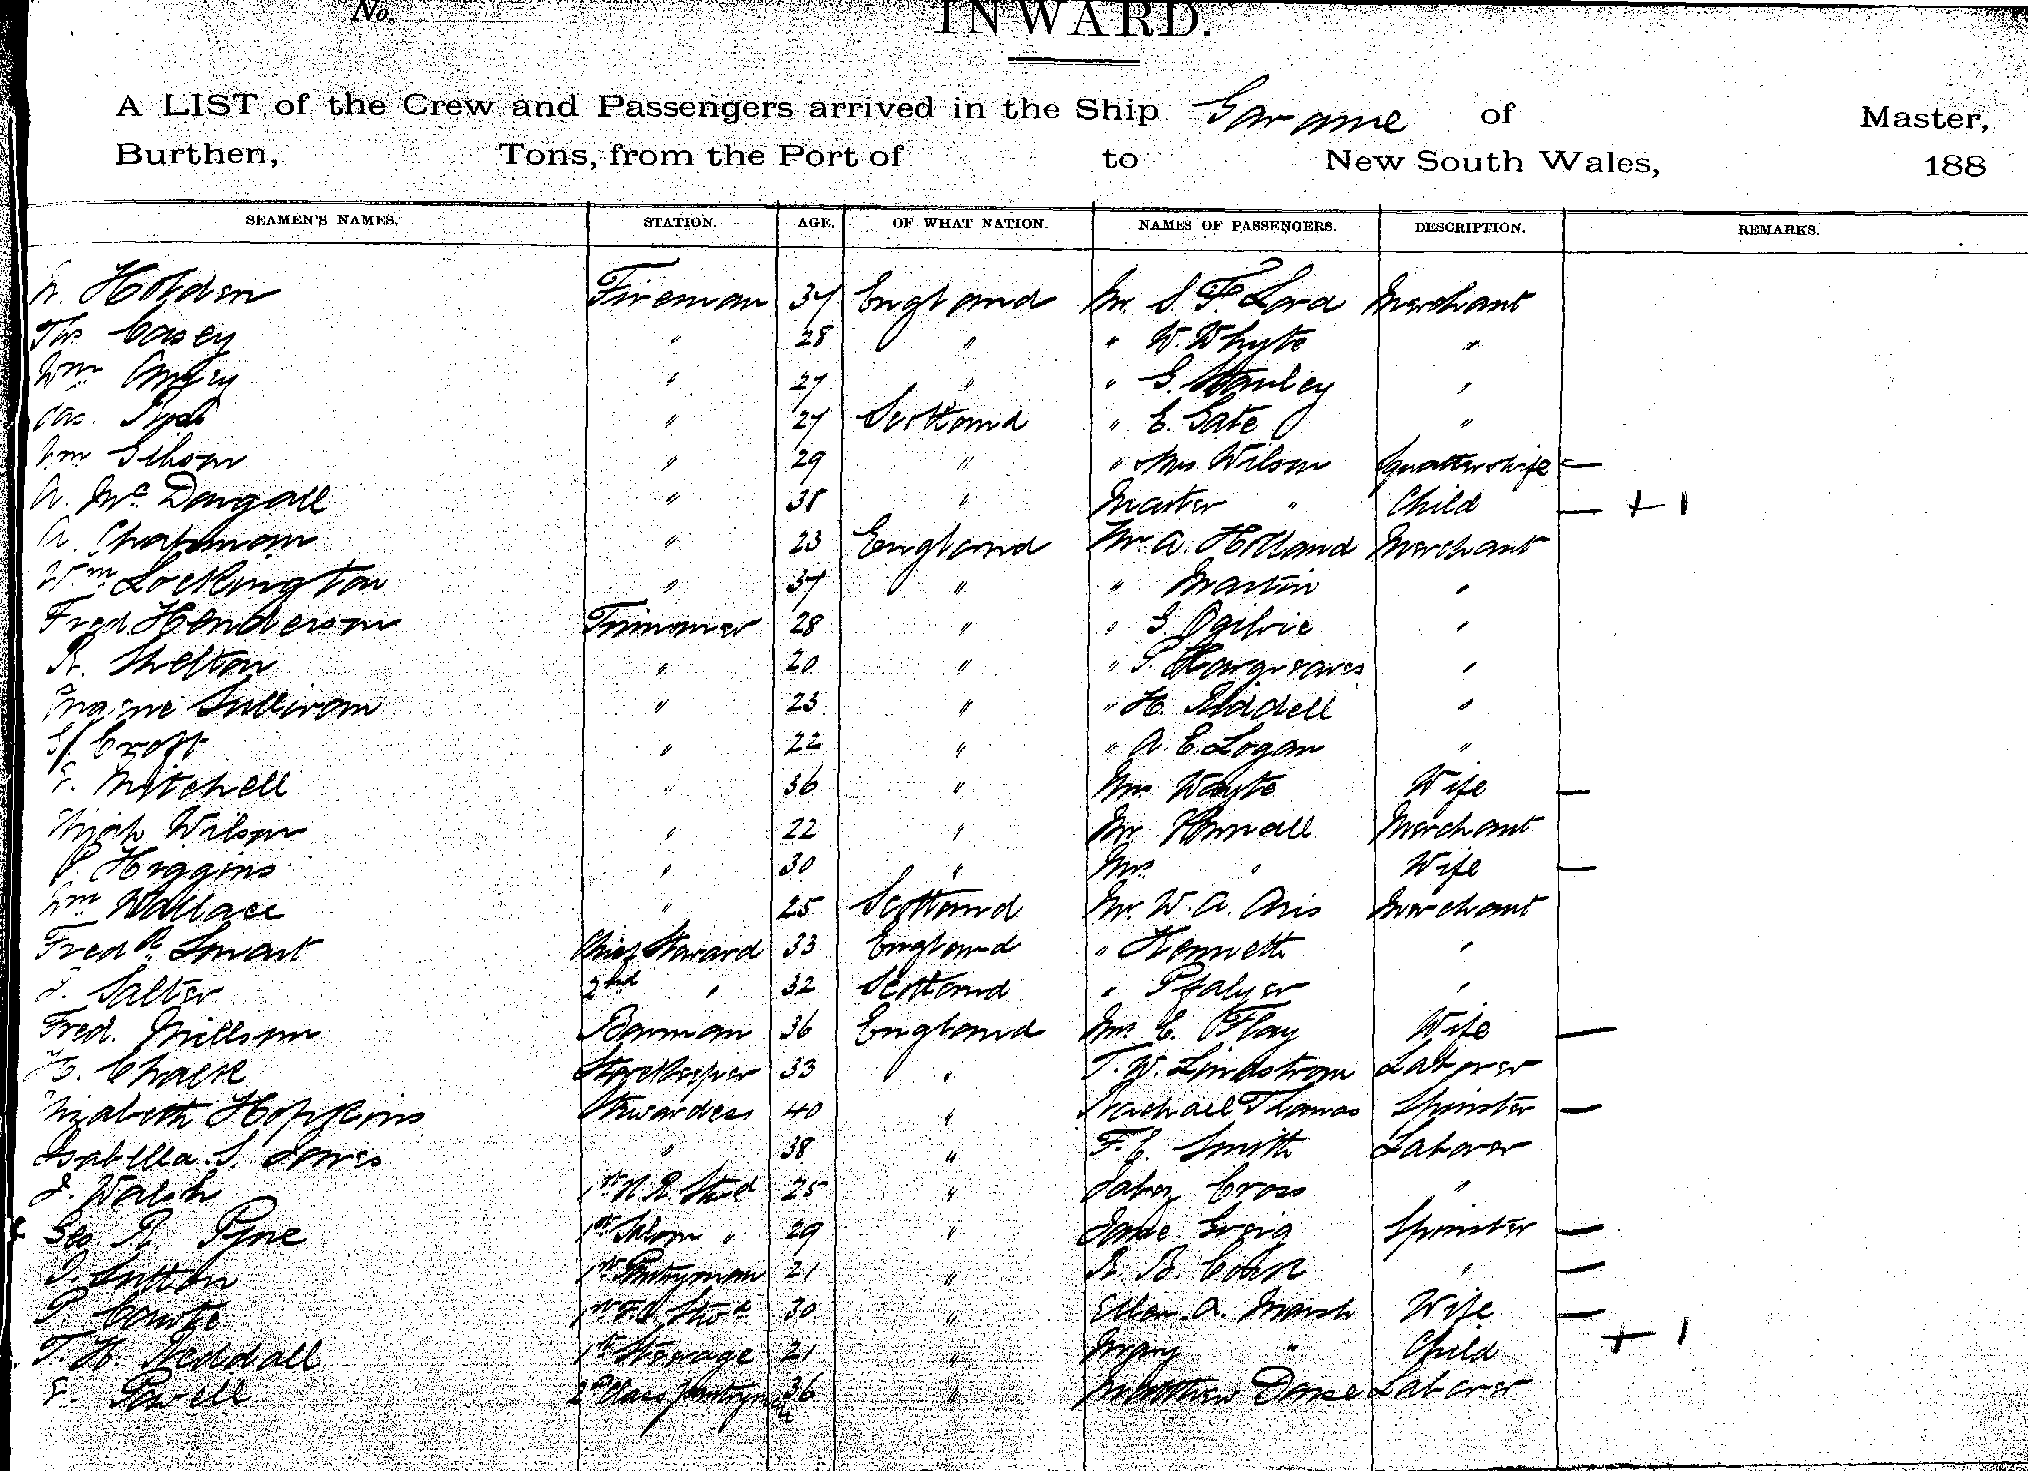 No.
INWARD.
A LIST of the Crew and Passengers arrived in the Ship Garonne of Master,
Burthen, Tons, from the Port of to New South Wales, 188
SEAMEN'S NAMES. STATION. AGE. OF WHAT NATION. NAMES OF PASSENGERS. DESCRIPTION. REMARKS.
Holden Fireman 37 England Mr. S. F. Lord Merchant
Thos Casey " 28 " " W. Whyte "
Wm " 27 " " G. Stanley "
Jas. " 27 Scotland " E. Gate "
Wm Gibson " 29 " " Mrs Wilson Squatters Wife —
A. McDougall " 38 " Master " Child — + 1
A. Chapman " 23 England Mr. A. Holland Merchant
Wm Lockington " 37 " " Martin "
Fred Henderson Trimmer 28 " " G. Ogilvie "
R. Shelton " 20 " " Hargreaves "
Sullivan " 23 " " H. Riddell "
Croft " 22 " " A. E. Logan "
Mitchell " 36 " Mrs Whyte Wife —
Hugh Wilson " 22 " Mr Merchant
P. Higgins " 30 " Mrs " Wife —
Wm Wallace " 25 Scotland Mr. W. A. Aris Merchant
Fredk Smart Chief Steward 33 England " Kennett "
J. Salter 2nd " 32 Scotland " "
Fred. Millson Barman 36 England Mrs E. Flay Wife —
Chack Storekeeper 33 " T. W. Lindstrom Laborer
Elizabeth Hopkins Stewardess 40 " Rachael Thomas Spinster —
Isabella S. " 38 " F. E. Smith Laborer
J. Walsh 25 " Cross "
Geo R. Pyne 1st Saloon " 29 " Jane Greig Spinster —
Sutton 1st Pantryman 21 " R. B. " —
30 " Ellen A. Marsh Wife —
T. H. Neddall 1st Steerage 21 " Mary " Child + 1
Powell 2nd Class Pantryman 36 " Matthew Laborer